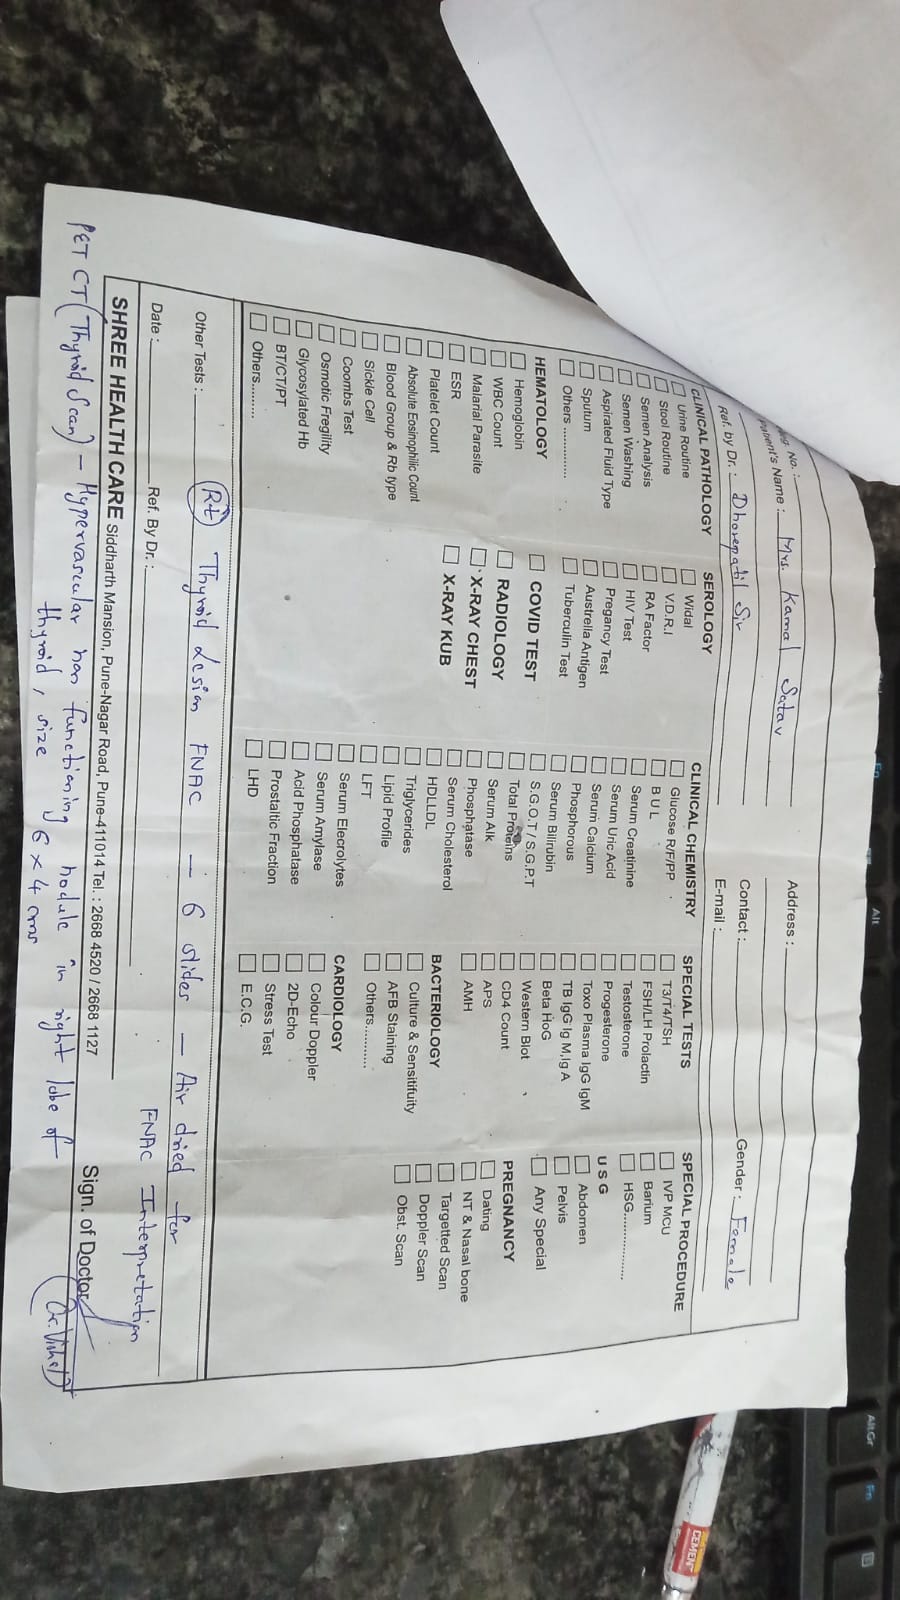 Reg. No. :
Patient's Name : Mrs. Kamal Satav
Ref. by Dr. : Dhorepatil Sir
Address :
Contact :
E-mail :
Gender : Female
CLINICAL PATHOLOGY
Urine Routine
Stool Routine
Semen Analysis
Semen Washing
Aspirated Fluid Type
Sputum
Others ............
HEMATOLOGY
Hemoglobin
WBC Count
Malarial Parasite
ESR
Platelet Count
Absolute Eosinophilic Count
Blood Group & Rb type
Slckle Cell
Coombs Test
Osmotic Fregility
Glycosylated Hb
BT/CT/PT
Others.........
SEROLOGY
Widal
V.D.R.I
RA Factor
HIV Test
Pregancy Test
Austrella Antigen
Tuberculin Test
COVID TEST
RADIOLOGY
X-RAY CHEST
X-RAY KUB
CLINICAL CHEMISTRY
Glucose R/F/PP
B U L
Serum Creatinine
Serum Uric Acid
Serum Calcium
Phosphorous
Serum Bilirubin
S.G.O.T/ S.G.P.T
Total Proteins
Serum Alk
Phosphatase
Serum Cholesterol
HDLLDL
Triglycerides
Lipid Profile
LFT
Serum Elecrolytes
Serum Amylase
Acid Phosphatase
Prostaltic Fraction
LHD
SPECIAL TESTS
T3/T4/TSH
FSH/LH Prolactin
Testosterone
Progesterone
Toxo Plasma IgG IgM
TB IgG Ig M,Ig A
Beta HoG
Western Blot
CD4 Count
APS
AMH
BACTERIOLOGY
Culture & Sensitifuity
AFB Staining
Others...........
CARDIOLOGY
Colour Doppler
2D-Echo
Stress Test
E.C.G.
SPECIAL PROCEDURE
IVP MCU
Barium
HSG................
U S G
Abdomen
Pelvis
Any Special
PREGNANCY
Dating
NT & Nasal bone
Targetted Scan
Doppler Scan
Obst. Scan
Other Tests : Rt Thyroid lesion FNAC - 6 slides - Air dried for
FNAC Interpretation
Date : Ref. By Dr. :
SHREE HEALTH CARE Siddharth Mansion, Pune-Nagar Road, Pune-411014 Tel. : 2668 4520 / 2668 1127
Sign. of Doctor
PET CT (Thyroid Scan) - Hypervascular non functioning nodule in right lobe of
thyroid, size 6 x 4 cms
Alt
AltGr
Fn
CEMENT